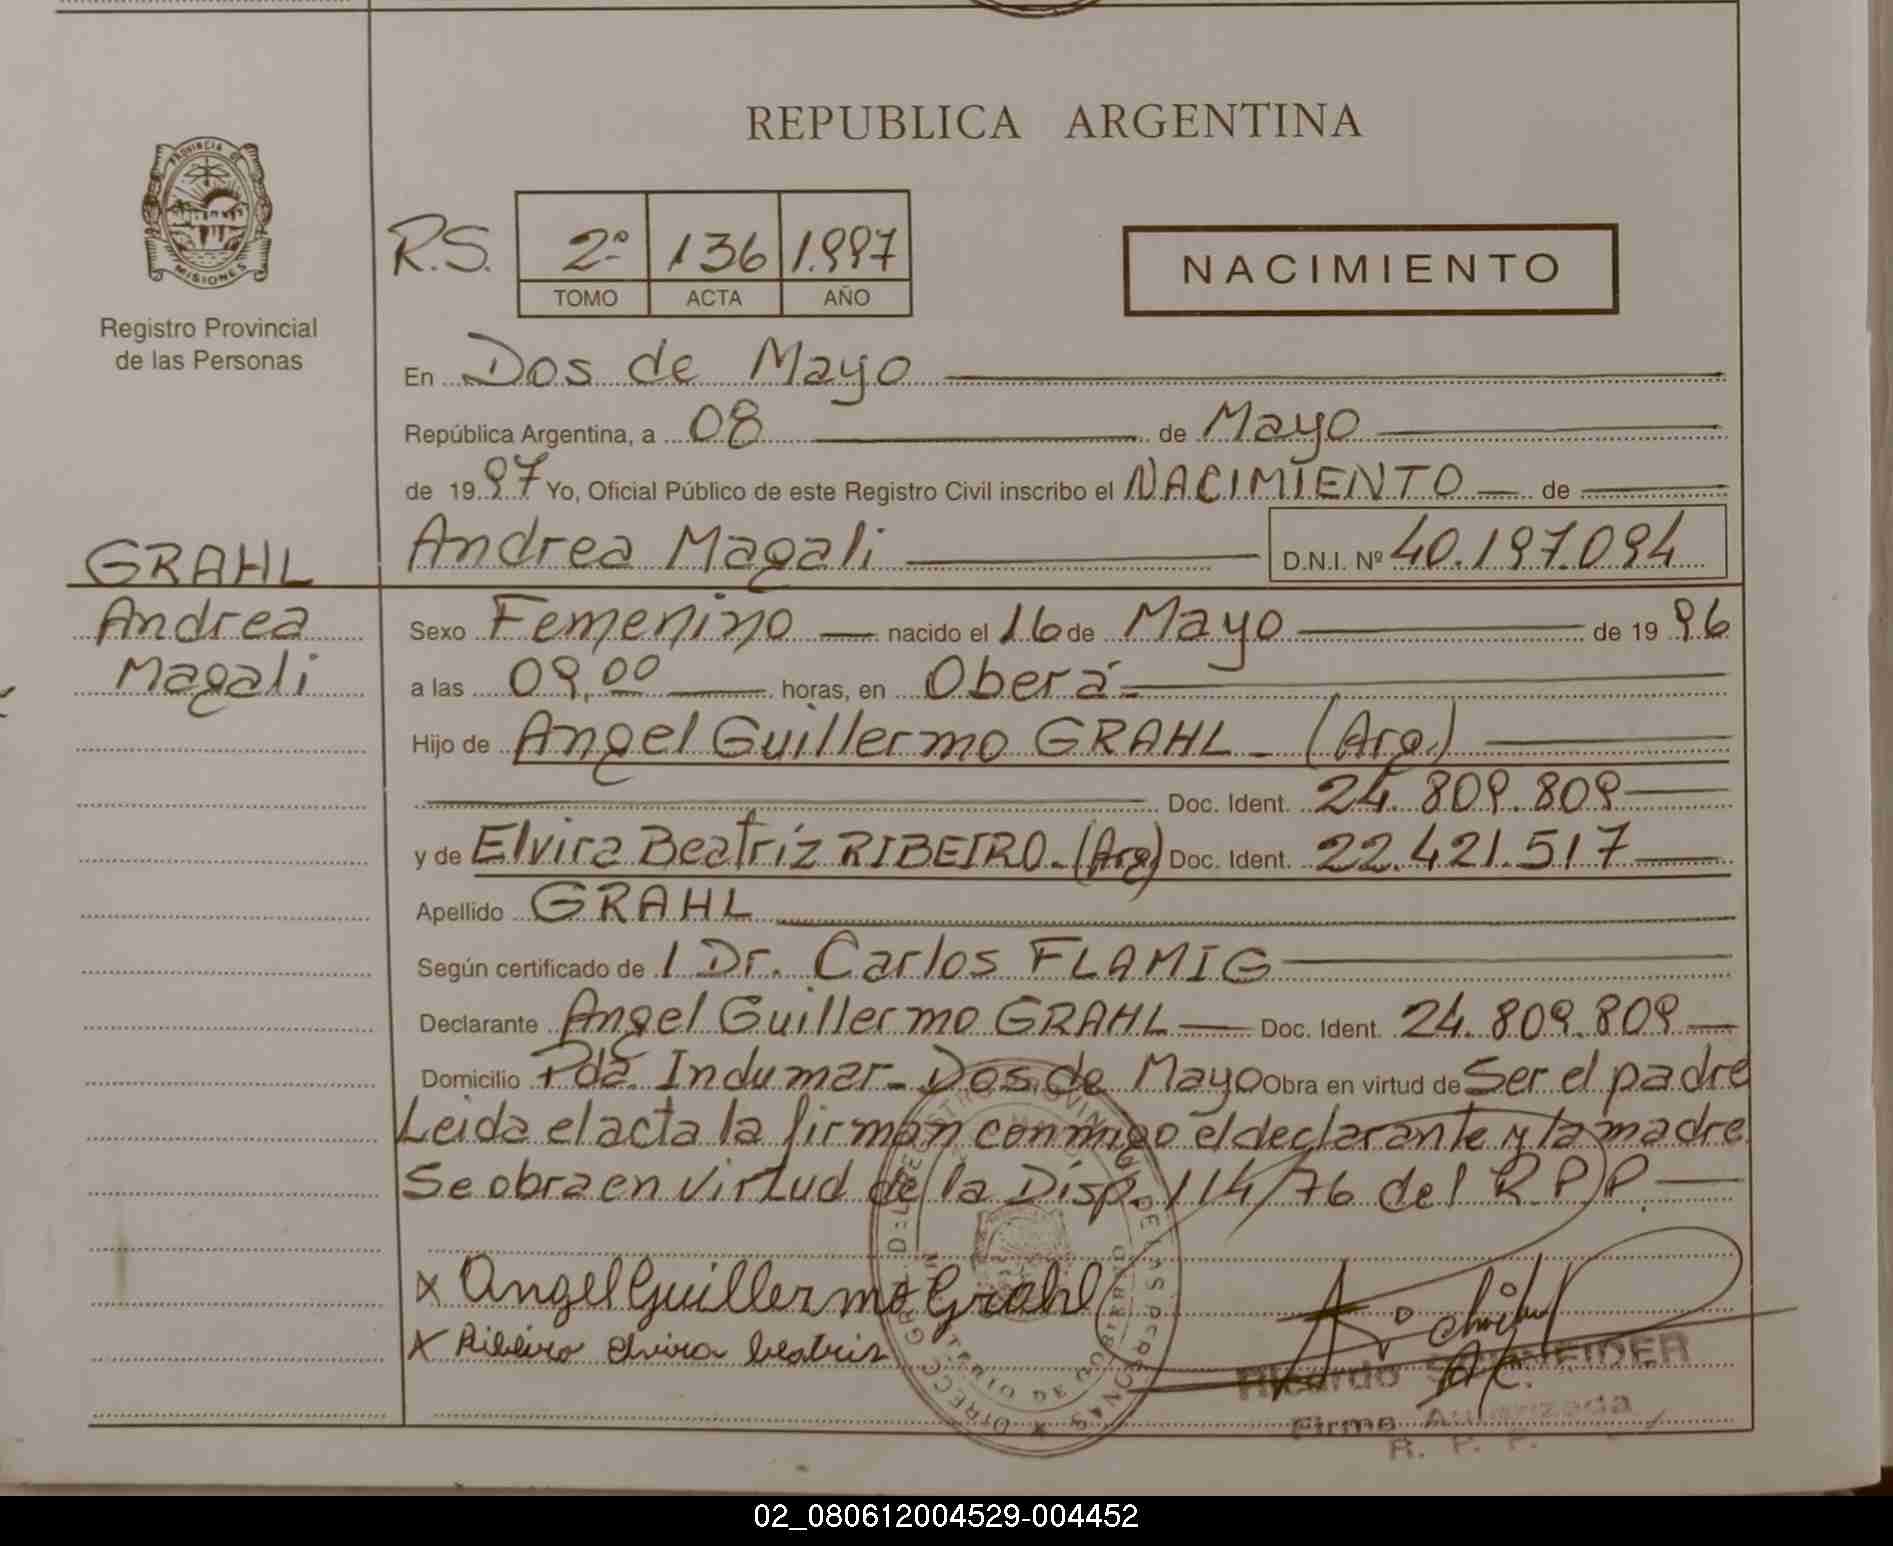 REPUBLICA ARGENTINA
PROVINCIA DE
MISIONES
Registro Provincial
de las Personas
R.S. 2º 136 1.997
TOMO ACTA AÑO
NACIMIENTO
En Dos de Mayo
República Argentina, a 08 de Mayo
de 1997 Yo, Oficial Público de este Registro Civil inscribo el NACIMIENTO de
GRAHL
Andrea Magali D.N.I. Nº 40.197.094
Andrea
Magali
Sexo Femenino nacido el 16 de Mayo de 1996
a las 09,00 horas, en Oberá
Hijo de Angel Guillermo GRAHL - (Arg.)
Doc. Ident. 24.809.809
y de Elvira Beatríz RIBEIRO - (Arg) Doc. Ident. 22.421.517
Apellido GRAHL
Según certificado de 1 Dr. Carlos FLAMIG
Declarante Angel Guillermo GRAHL Doc. Ident. 24.809.809
Domicilio Pda Indumar - Dos de Mayo Obra en virtud de Ser el padre
Leida el acta la firman conmigo el declarante y la madre
Se obra en virtud de la Disp. 114/76 del R.P.P.
x Angel Guillermo Grahl
x Ribeiro elvira beatriz
Ricardo SCHNEIDER
Firma Autorizada
R. P. P.
02_080612004529-004452